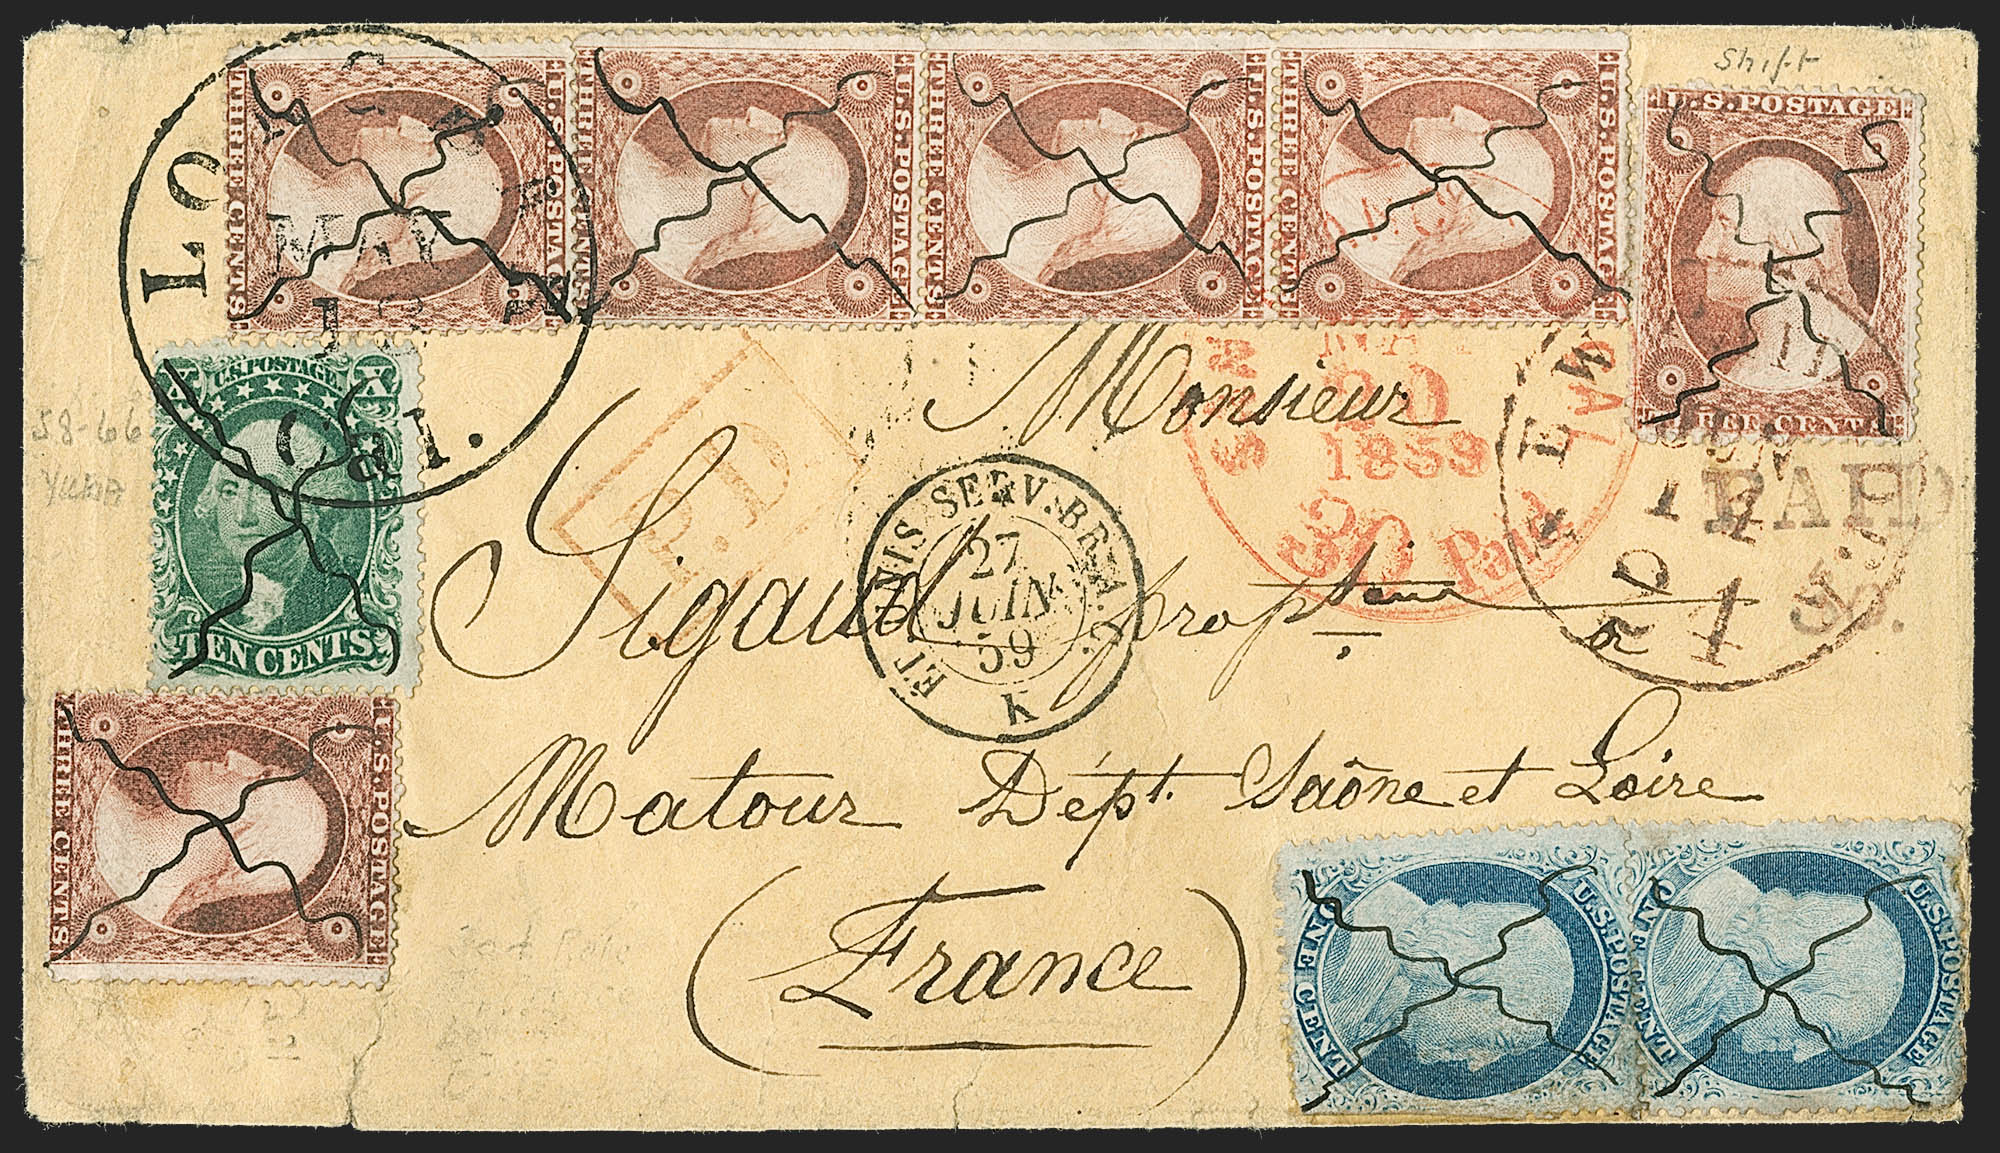 Shift
THREE CENTS U.S. POSTAGE
THREE CENTS U.S. POSTAGE
THREE CENTS U.S. POSTAGE
THREE CENTS U.S. POSTAGE
U.S. POSTAGE
CENTS
MAY
18
Cal.
X U.S. POSTAGE X
TEN CENTS
58-66
THREE CENTS U.S. POSTAGE
P.D.
MAY
20
1859
30 Paid
NEW
PAID
PAID
ET. UNIS SERV. BR. A. C.
27
JUIN
59
K
Monsieur
Sigaud propre
à
Matour Dépt. Saône et Loire
(France)
ONE CENT U.S. POSTAGE
ONE CENT U.S. POSTAGE